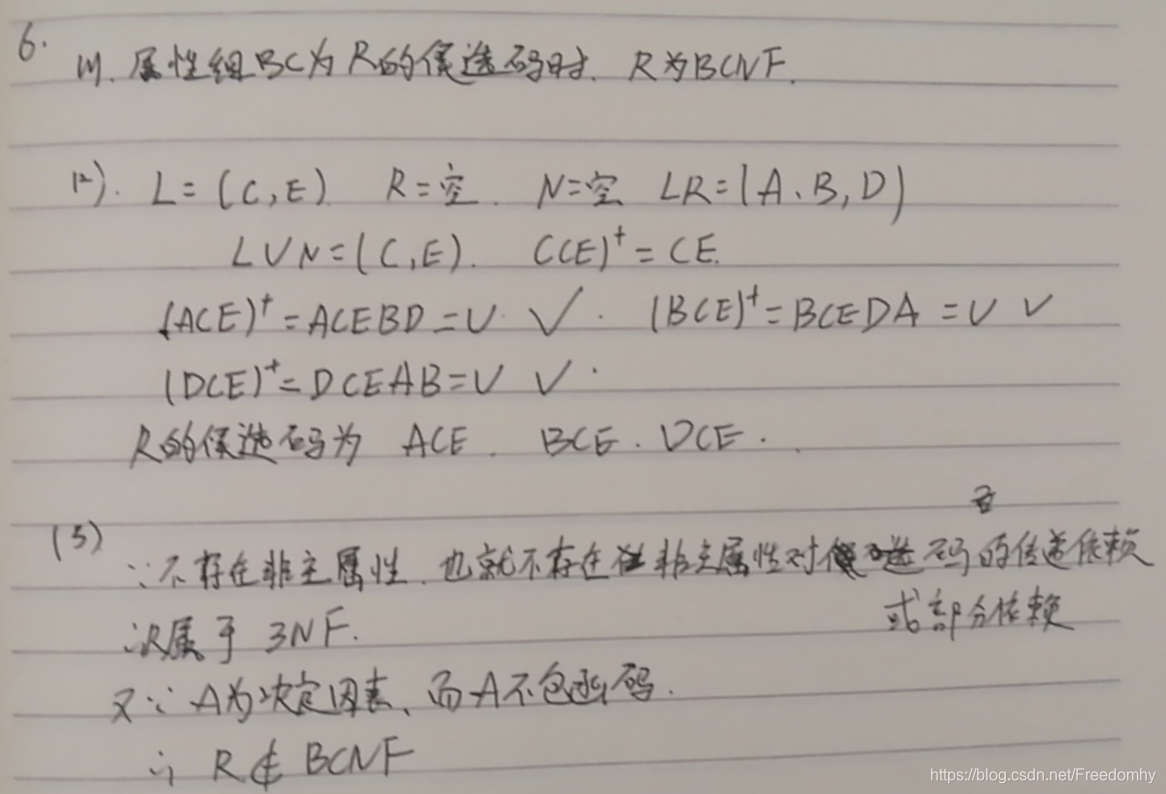 6.
(1). 属性组BC为R的候选码时. R为BCNF.
(2). L=(C,E) R=空. N=空 LR=(A、B,D)
LUN=(C,E). (CE)⁺=CE.
(ACE)⁺=ACEBD=U. ✓. (BCE)⁺=BCEDA=U ✓
(DCE)⁺=DCEAB=U ✓.
R的候选码为 ACE. BCE. DCE.
(3)
∵不存在非主属性.也就不存在非主属性对码的传递依赖
或部分依赖
∴R属于 3NF.
又∵A为决定因素、而A不包函码.
∴ R∉BCNF
https://blog.csdn.net/Freedomhy